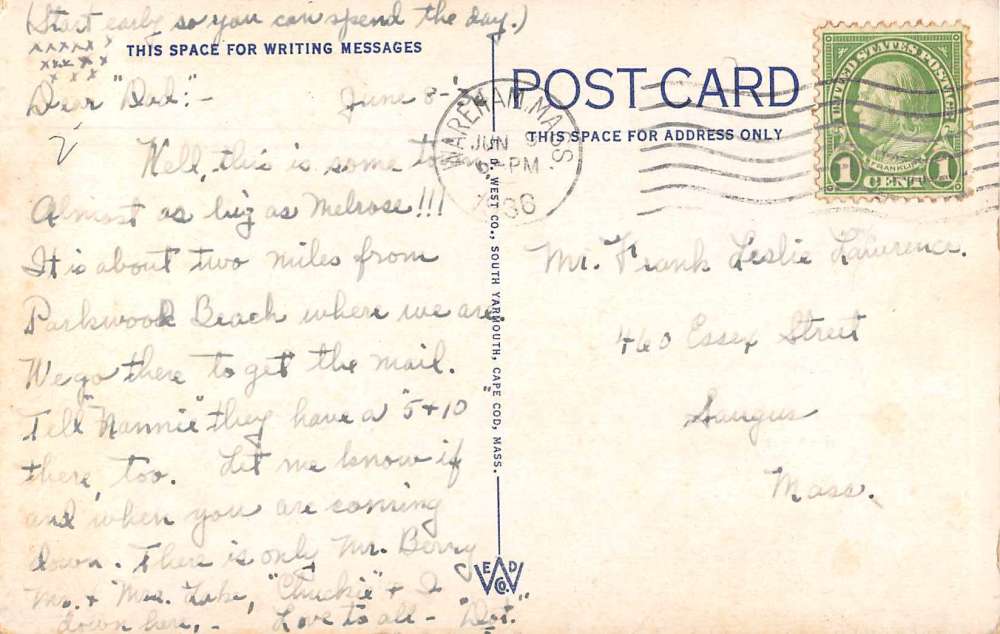 (Start early so you can spend the day.)
x x x x x x
x x x x x
x x x
THIS SPACE FOR WRITING MESSAGES
Dear "Dad":-
June 8-
Well, this is some town
Almost as big as Melrose!!!
It is about two miles from
Parkwood Beach where we are.
We go there to get the mail.
Tell "Nannie" they have a "5+10"
there, too. Let me know if
and when you are coming
down. There is only Mr. Berry
Mr. + Mrs. Lake, "Chuckie" + I
down here, - Love to all - "Dot."
WEST CO., SOUTH YARMOUTH, CAPE COD, MASS.
E W D
CO.
POST CARD
THIS SPACE FOR ADDRESS ONLY
WAREHAM, MASS
JUN 9
6-PM
1936
UNITED STATES POSTAGE
FRANKLIN
1 CENT 1
Mr. Frank Leslie Lawrence.
460 Essex Street
Saugus
Mass.